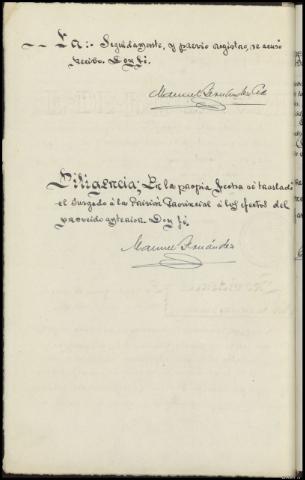 La:- Seguidamente, y previo registro, se acusó
recibo. Doy fé.
Manuel Fernández
Diligencia; En la propia fecha se trasladó
el Juzgado á la Prisión Provincial á los efectos del
proveido anterior. Doy fé.
Manuel Fernández